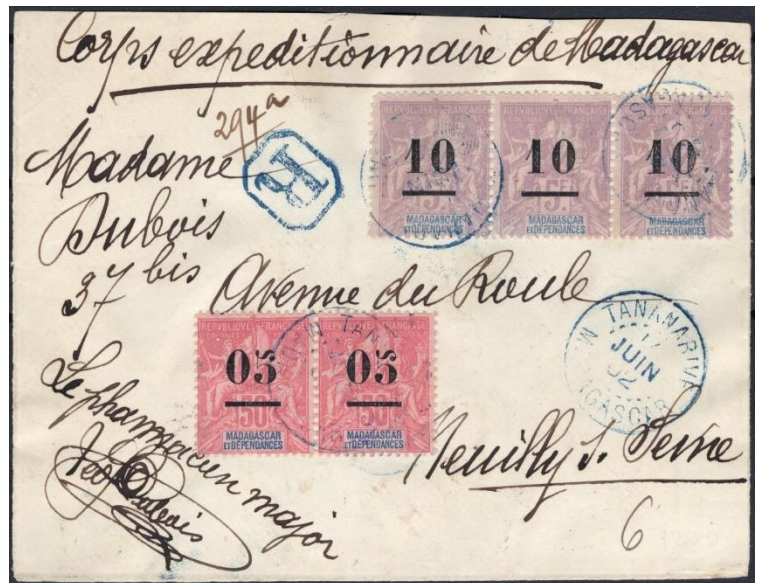 Corps expeditionnaire de Madagascar
294a
R
Madame
Dubois
37 bis Avenue du Roule
Neuilly s. Seine
Le pharmacien major
Dubois
REPVBLIQVE FRANÇAISE
10
5F
MADAGASCAR
ET DÉPENDANCES
REPVBLIQVE FRANÇAISE
10
5F
MADAGASCAR
ET DÉPENDANCES
REPVBLIQVE FRANÇAISE
10
MADAGASCAR
ET DÉPENDANCES
REPVBLIQVE FRANÇAISE
05
50
MADAGASCAR
ET DÉPENDANCES
REPVBLIQVE FRANÇAISE
05
50
MADAGASCAR
ET DÉPENDANCES
TANANARIVE
JUIN
02
MADAGASCAR
6